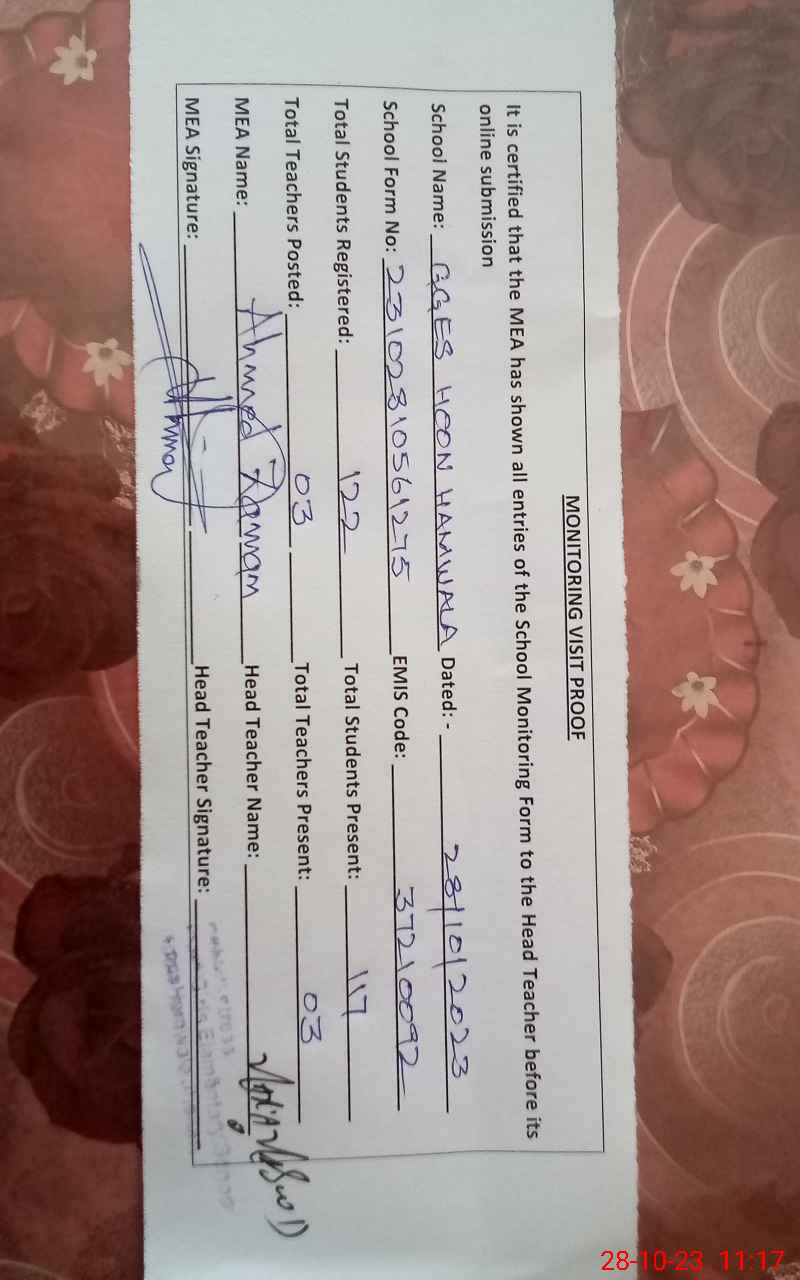 MONITORING VISIT PROOF
It is certified that the MEA has shown all entries of the School Monitoring Form to the Head Teacher before its
online submission
School Name: GGES HOON HAMWALA Dated:- 28/10/2023
School Form No: 23102810561275 EMIS Code: 37210092
Total Students Registered: 122 Total Students Present: 117
Total Teachers Posted: 03 Total Teachers Present: 03
MEA Name: Ahmed Zaman Head Teacher Name:
MEA Signature: Head Teacher Signature:
28-10-23 11:17